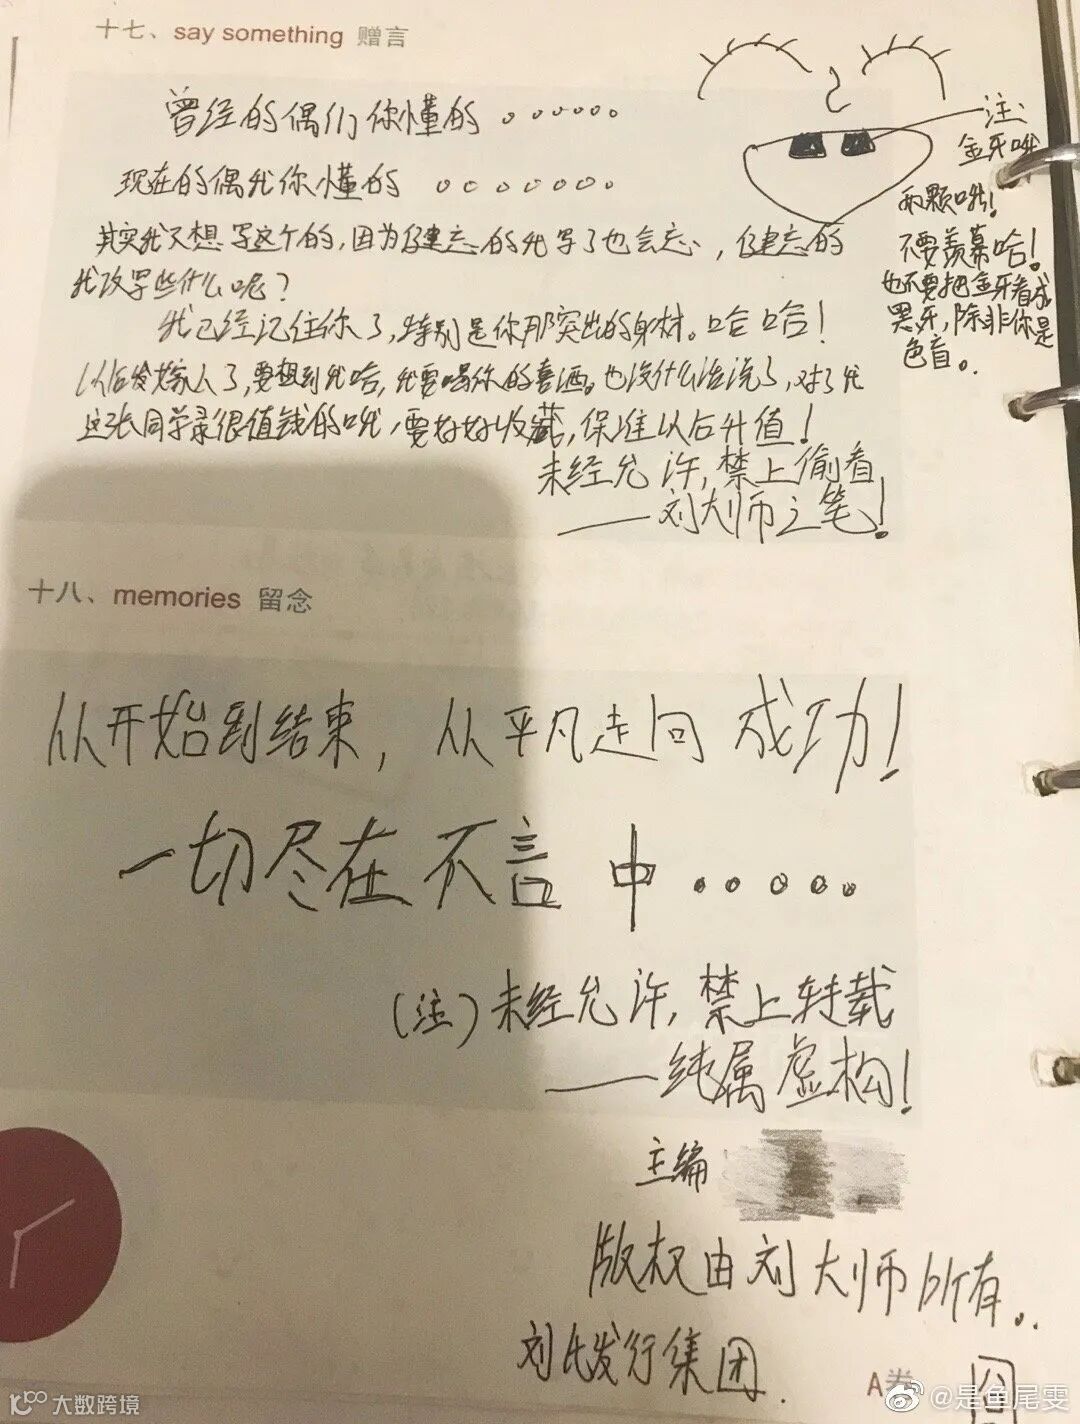 十七、say something 赠言
曾经的偶们你懂的 。。。。。。
现在的偶我你懂的 。。。。。。。
其实我不想写这个的,因为健忘的我写了也会忘,健忘的
我改写些什么呢?
我已经记住你了,特别是你那突出的身材。哈哈!
以后发嫁人了,要想到我哈,我要喝你的喜酒。也没什么话说了,对了我
这张同学录很值钱的哦,要好好收藏,保准以后升值!
未经允许,禁止偷看
——刘大师之笔!
注:
金牙哦
两颗哦!
不要羡慕哈!
也不要把金牙看成
黑牙,除非你是
色盲。.
十八、memories 留念
从开始到结束,从平凡走向成功!
一切尽在不言中 。。。。。
(注)未经允许,禁止转载
——纯属虚构!
主编
版权由刘大师所有..
刘氏发行集团.
A卷
囧
大数跨境
@是鱼尾雯